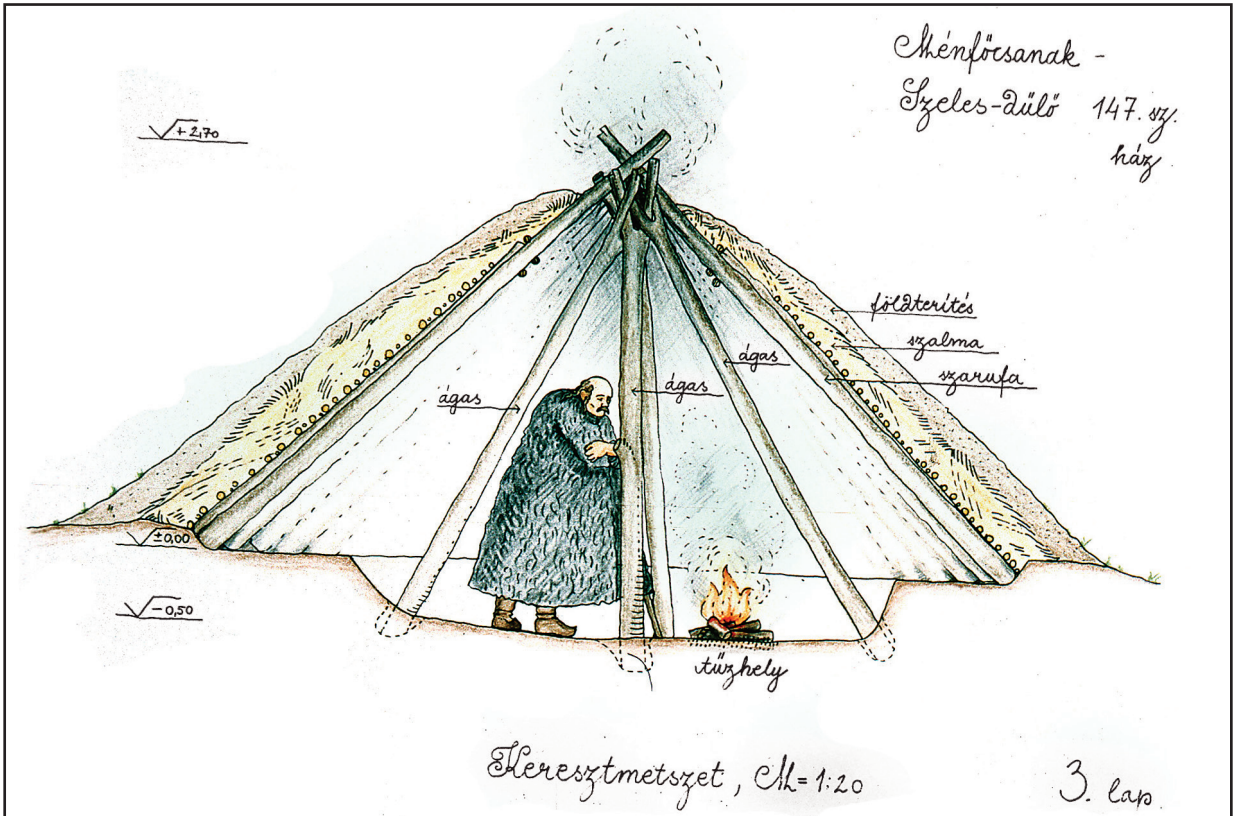 Ménfőcsanak -
Szeles-dűlő 147. sz.
ház
+2,70
földterítés
szalma
szarufa
ágas
ágas
ágas
±0,00
-0,50
tűzhely
Keresztmetszet, M=1:20
3. lap